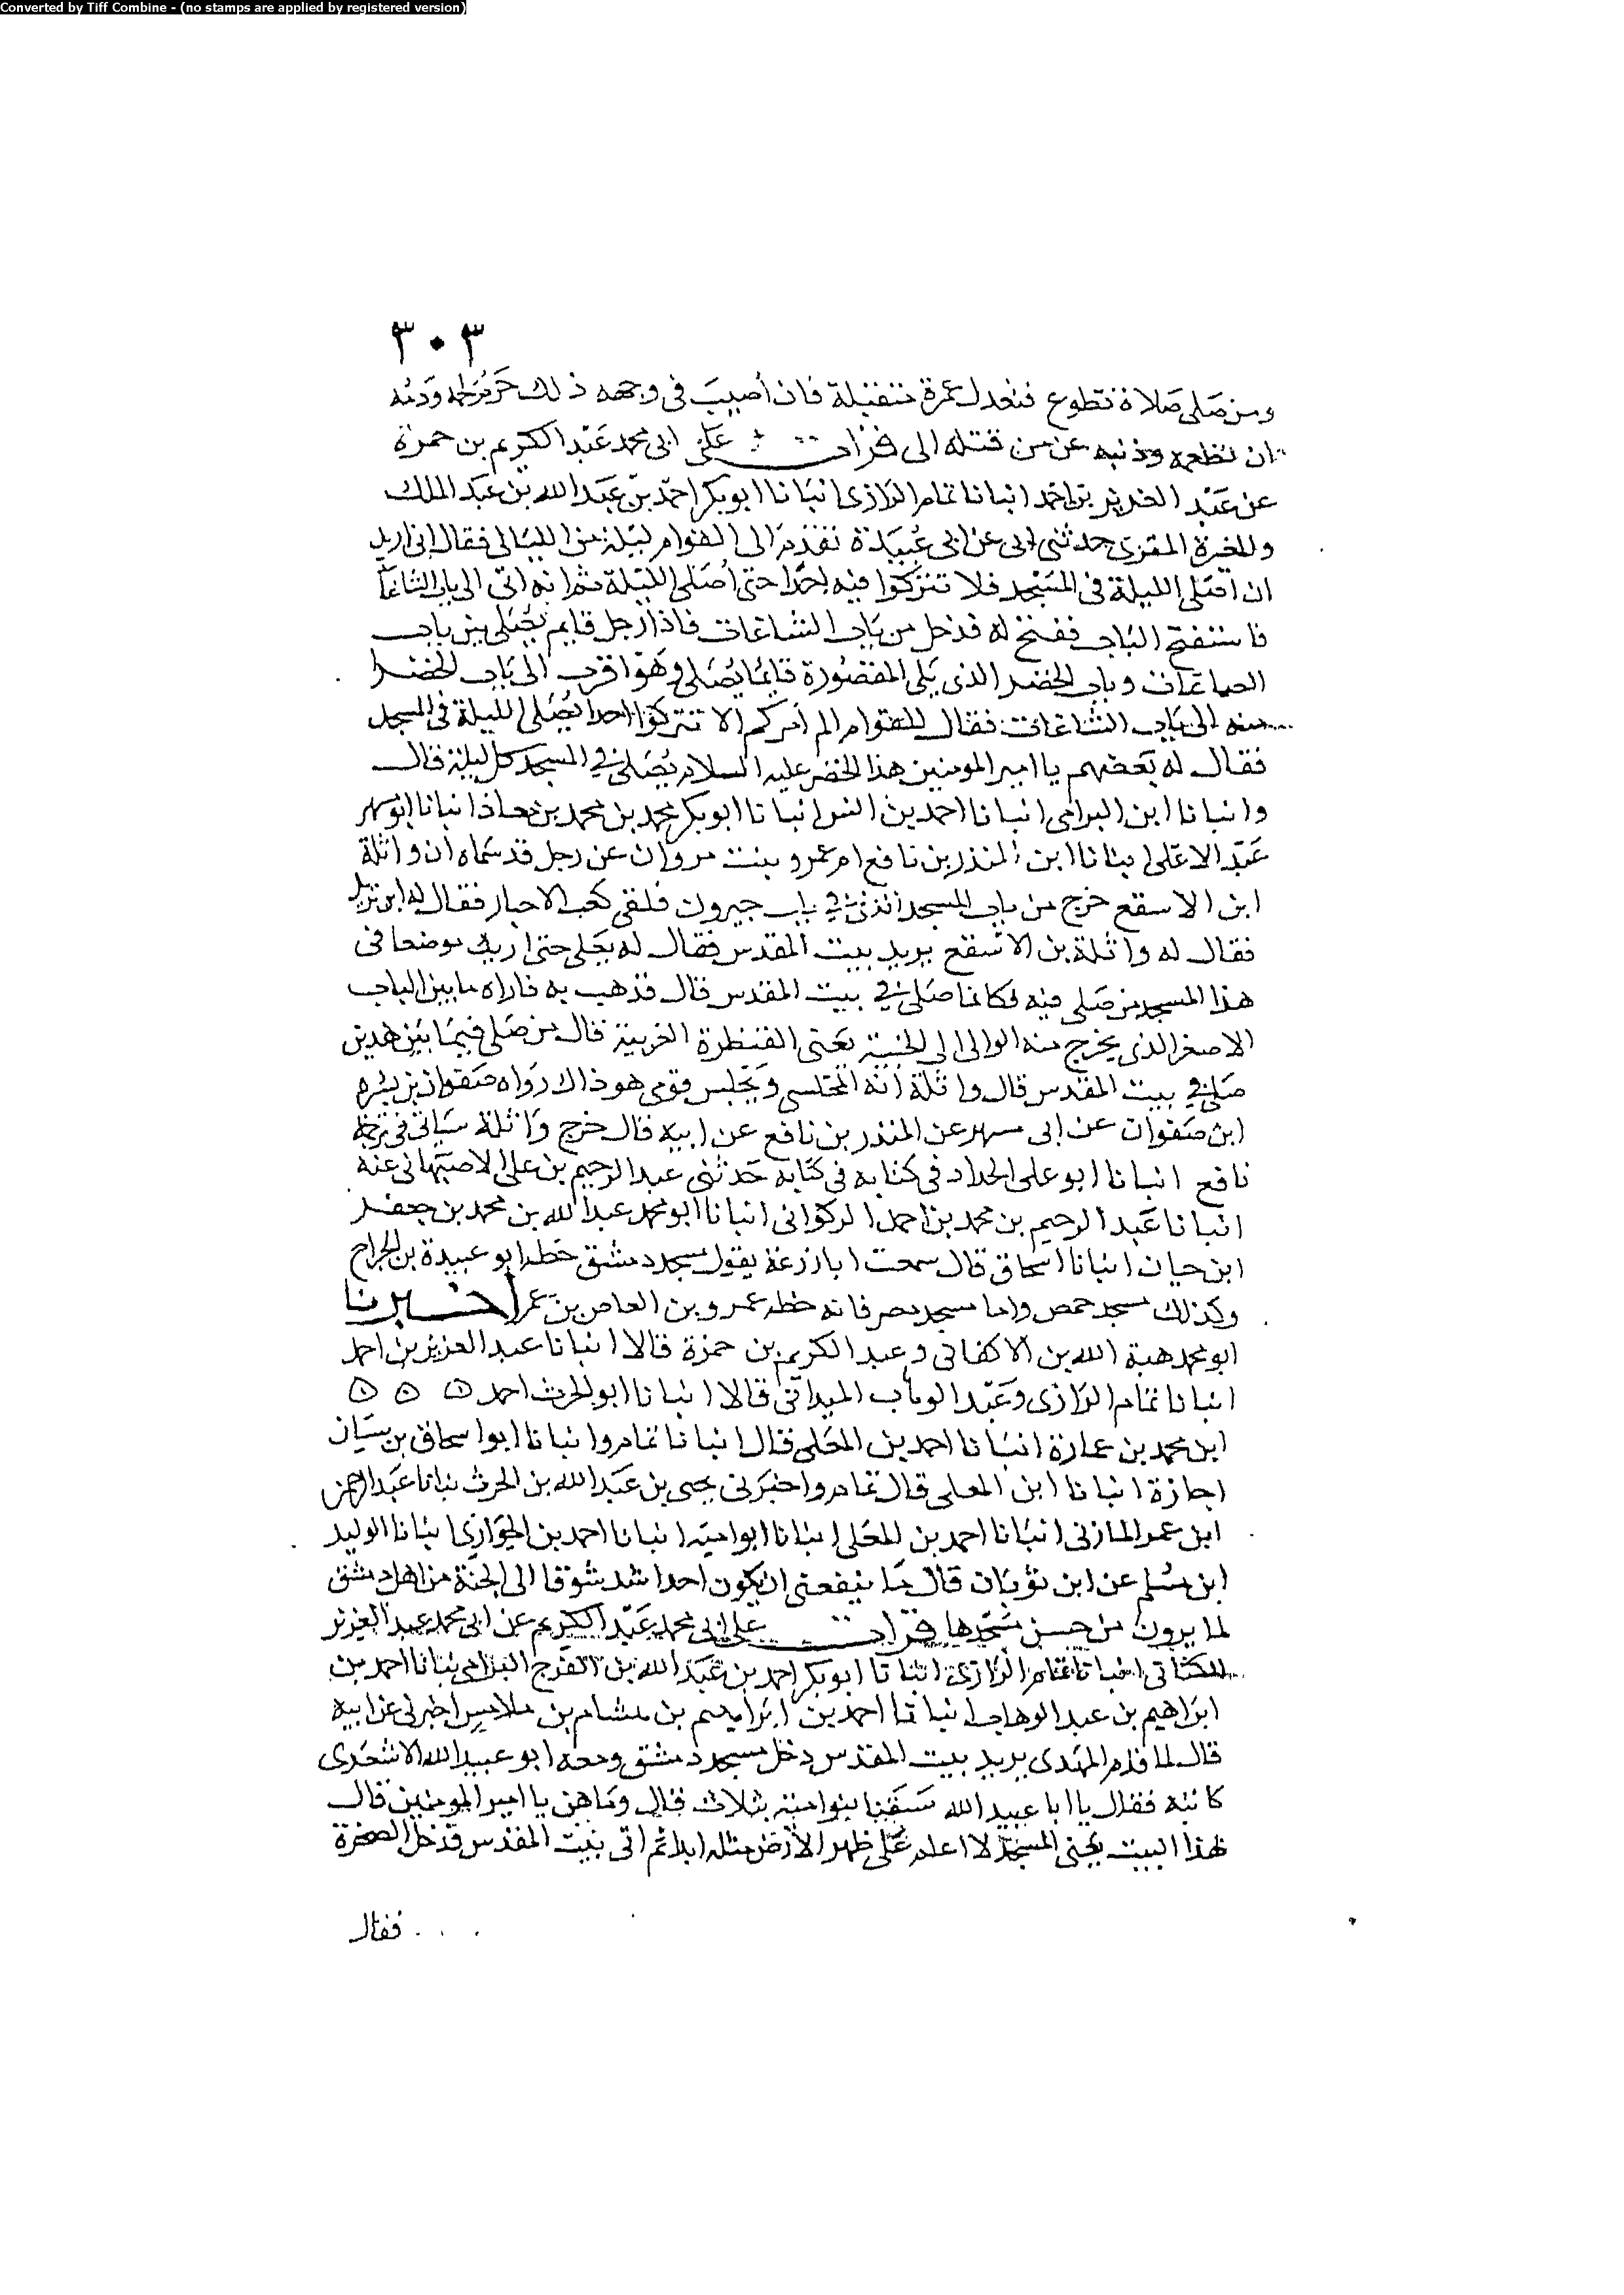 Converted by Tiff Combine - (no stamps are applied by registered version)
٣٠٣
ومن صلى صلاة تطوع فتعدل عمرة متقبلة فان أصيب في وجهه ذلك حرم لحمه ودمه
ان تطعمه وذنبه عن من قتله الى قرات على ابى محمد عبد الكريم بن حمزة
عن عبد العزيز بن احمد انبانا تمام الرازى انبانا ابو بكر احمد بن عبد الله بن عبد الملك
وللغيرة المقرى حدثنى ابى عن ابى عبيدة تقدم الى القوام ليلة من الليالى فقال انى اريد
ان اصلى الليلة فى المسجد فلا تتركوا فيه احدا حتى أصلى الليلة ثم انه اتى الى باب الساعات
فاستفتح الباب ففتح له فدخل من باب الساعات فاذا رجل قايم يصلى بين باب
الساعات وباب الخضرا الذى يلى المقصورة قايما يصلى وهو اقرب الى باب الخضرا
منه الى باب الساعات فقال للقوام الم امركم الا تتركوا احدا يصلى الليلة فى المسجد
فقال له بعضهم يا امير المومنين هذا الخضر عليه السلام يصلى في المسجد كل ليلة قال
وانبانا ابن البرامى انبانا احمد بن انس انبانا ابو بكر محمد بن محمد بن معاذ انبانا ابو مسهر
عبد الاعلى انبانا ابن المنذر بن نافع ام عمرو بنت مروان عن رجل قد سماه ان واثلة
ابن الاسقع خرج من باب المسجد الذى في باب جيرون فلقى كعب الاحبار فقال له اين تريد
فقال له واثلة بن الاسقع يريد بيت المقدس فقال له تعلى حتى اريك موضعا فى
هذا المسجد من صلى فيه فكانما صلى في بيت المقدس قال فذهب به فاراه ما بين الباب
الاصغر الذى يخرج منه الوالى الى الحنية يعنى القنطرة الغربية قال من صلى فيما بين هذين
صلى في بيت المقدس قال واثلة انه لمجلسى ومجلس قومى هو ذاك رواه صفوان بن
ابن صفوان عن ابى مسهر عن المنذر بن نافع عن ابيه قال خرج واثلة سياتى فى ترجمة
نافع انبانا ابو على الحداد فى كتابه فى كتابه حدثنى عبد الرحيم بن على الاصبهانى عنه
انبانا عبد الرحيم بن محمد بن احمد الركوانى انبانا ابو محمد عبد الله بن محمد بن جعفر
ابن حيان انبانا اسحاق قال سمعت ابا زرعة يقول مسجد دمشق خطه ابو عبيدة بن الجراح
وكذلك مسجد حمص واما مسجد مصر فانه خطه عمرو بن العاص بن عمر اخبرنا
ابو محمد هبة الله بن الاكفانى وعبد الكريم بن حمزة قالا انبانا عبد العزيز بن احمد
انبانا تمام الرازى وعبد الوهاب الميدانى قالا انبانا ابو الحرث احمد
ابن محمد بن عمارة انبانا احمد بن المعلى قال انبانا تمام وانبانا ابو اسحاق بن سنان
اجازة انبانا ابن المعلى قال تمام واخبرنى يحيى بن عبد الله بن الحرث نبانا عبد الرحمن
ابن عمر المازنى انبانا احمد بن المعلى انبانا ابو اميه انبانا احمد بن الحوارى انبانا الوليد
ابن مسلم عن ابن ثوبان قال ما ينبغى ان يكون احدا شد شوقا الى الجنة من اهل دمشق
لما يرون من حسن مسجدها قرات على ابى محمد عبد الكريم عن ابى محمد عبد العزيز
الكتانى انبانا تمام الرازى انبانا ابو بكر احمد بن عبد الله بن الفرج البرامى نبانا احمد بن
ابراهيم بن عبد الوهاب انبانا احمد بن ابراهيم بن هشام بن ملاس اخبرنى عن ابيه
قال لما قدم المهدى يريد بيت المقدس دخل مسجد دمشق ومعه ابو عبيد الله الاشعرى
كاتبه فقال يا ابا عبيد الله سبقنا بنو امية بثلاث قال وما هن يا امير المومنين قال
هذا البيت يعنى المسجد لا اعلم على ظهر الارض مثله ابدا ثم اتى بيت المقدس فدخل الصخرة
فقال